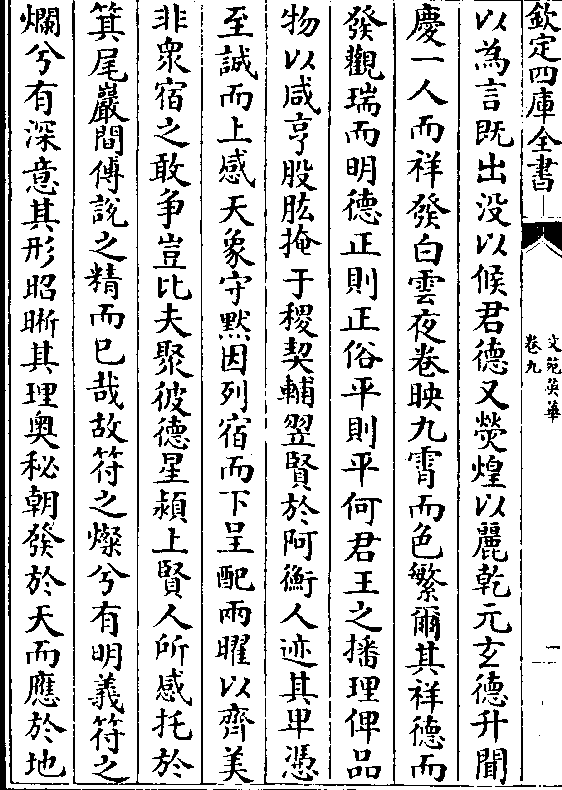 欽定四庫全書
文苑英華
卷九
一
以為言既出没以候君德又熒煌以麗乾元玄德升聞
慶一人而祥發白雲夜卷映九霄而色繁爾其祥德而
發觀瑞而明德正則正俗平則平何君王之播理俾品
物以咸亨股肱掩于稷契輔翌賢於阿衡人迹其卑憑
至誠而上感天象守黙因列宿而下呈配兩曜以齊美
非衆宿之敢争豈比夫聚彼德星潁上賢人所感托於
箕尾巖間傅說之精而已哉故符之燦兮有明義符之
爛兮有深意其形昭晣其理奥秘朝發於天而應於地